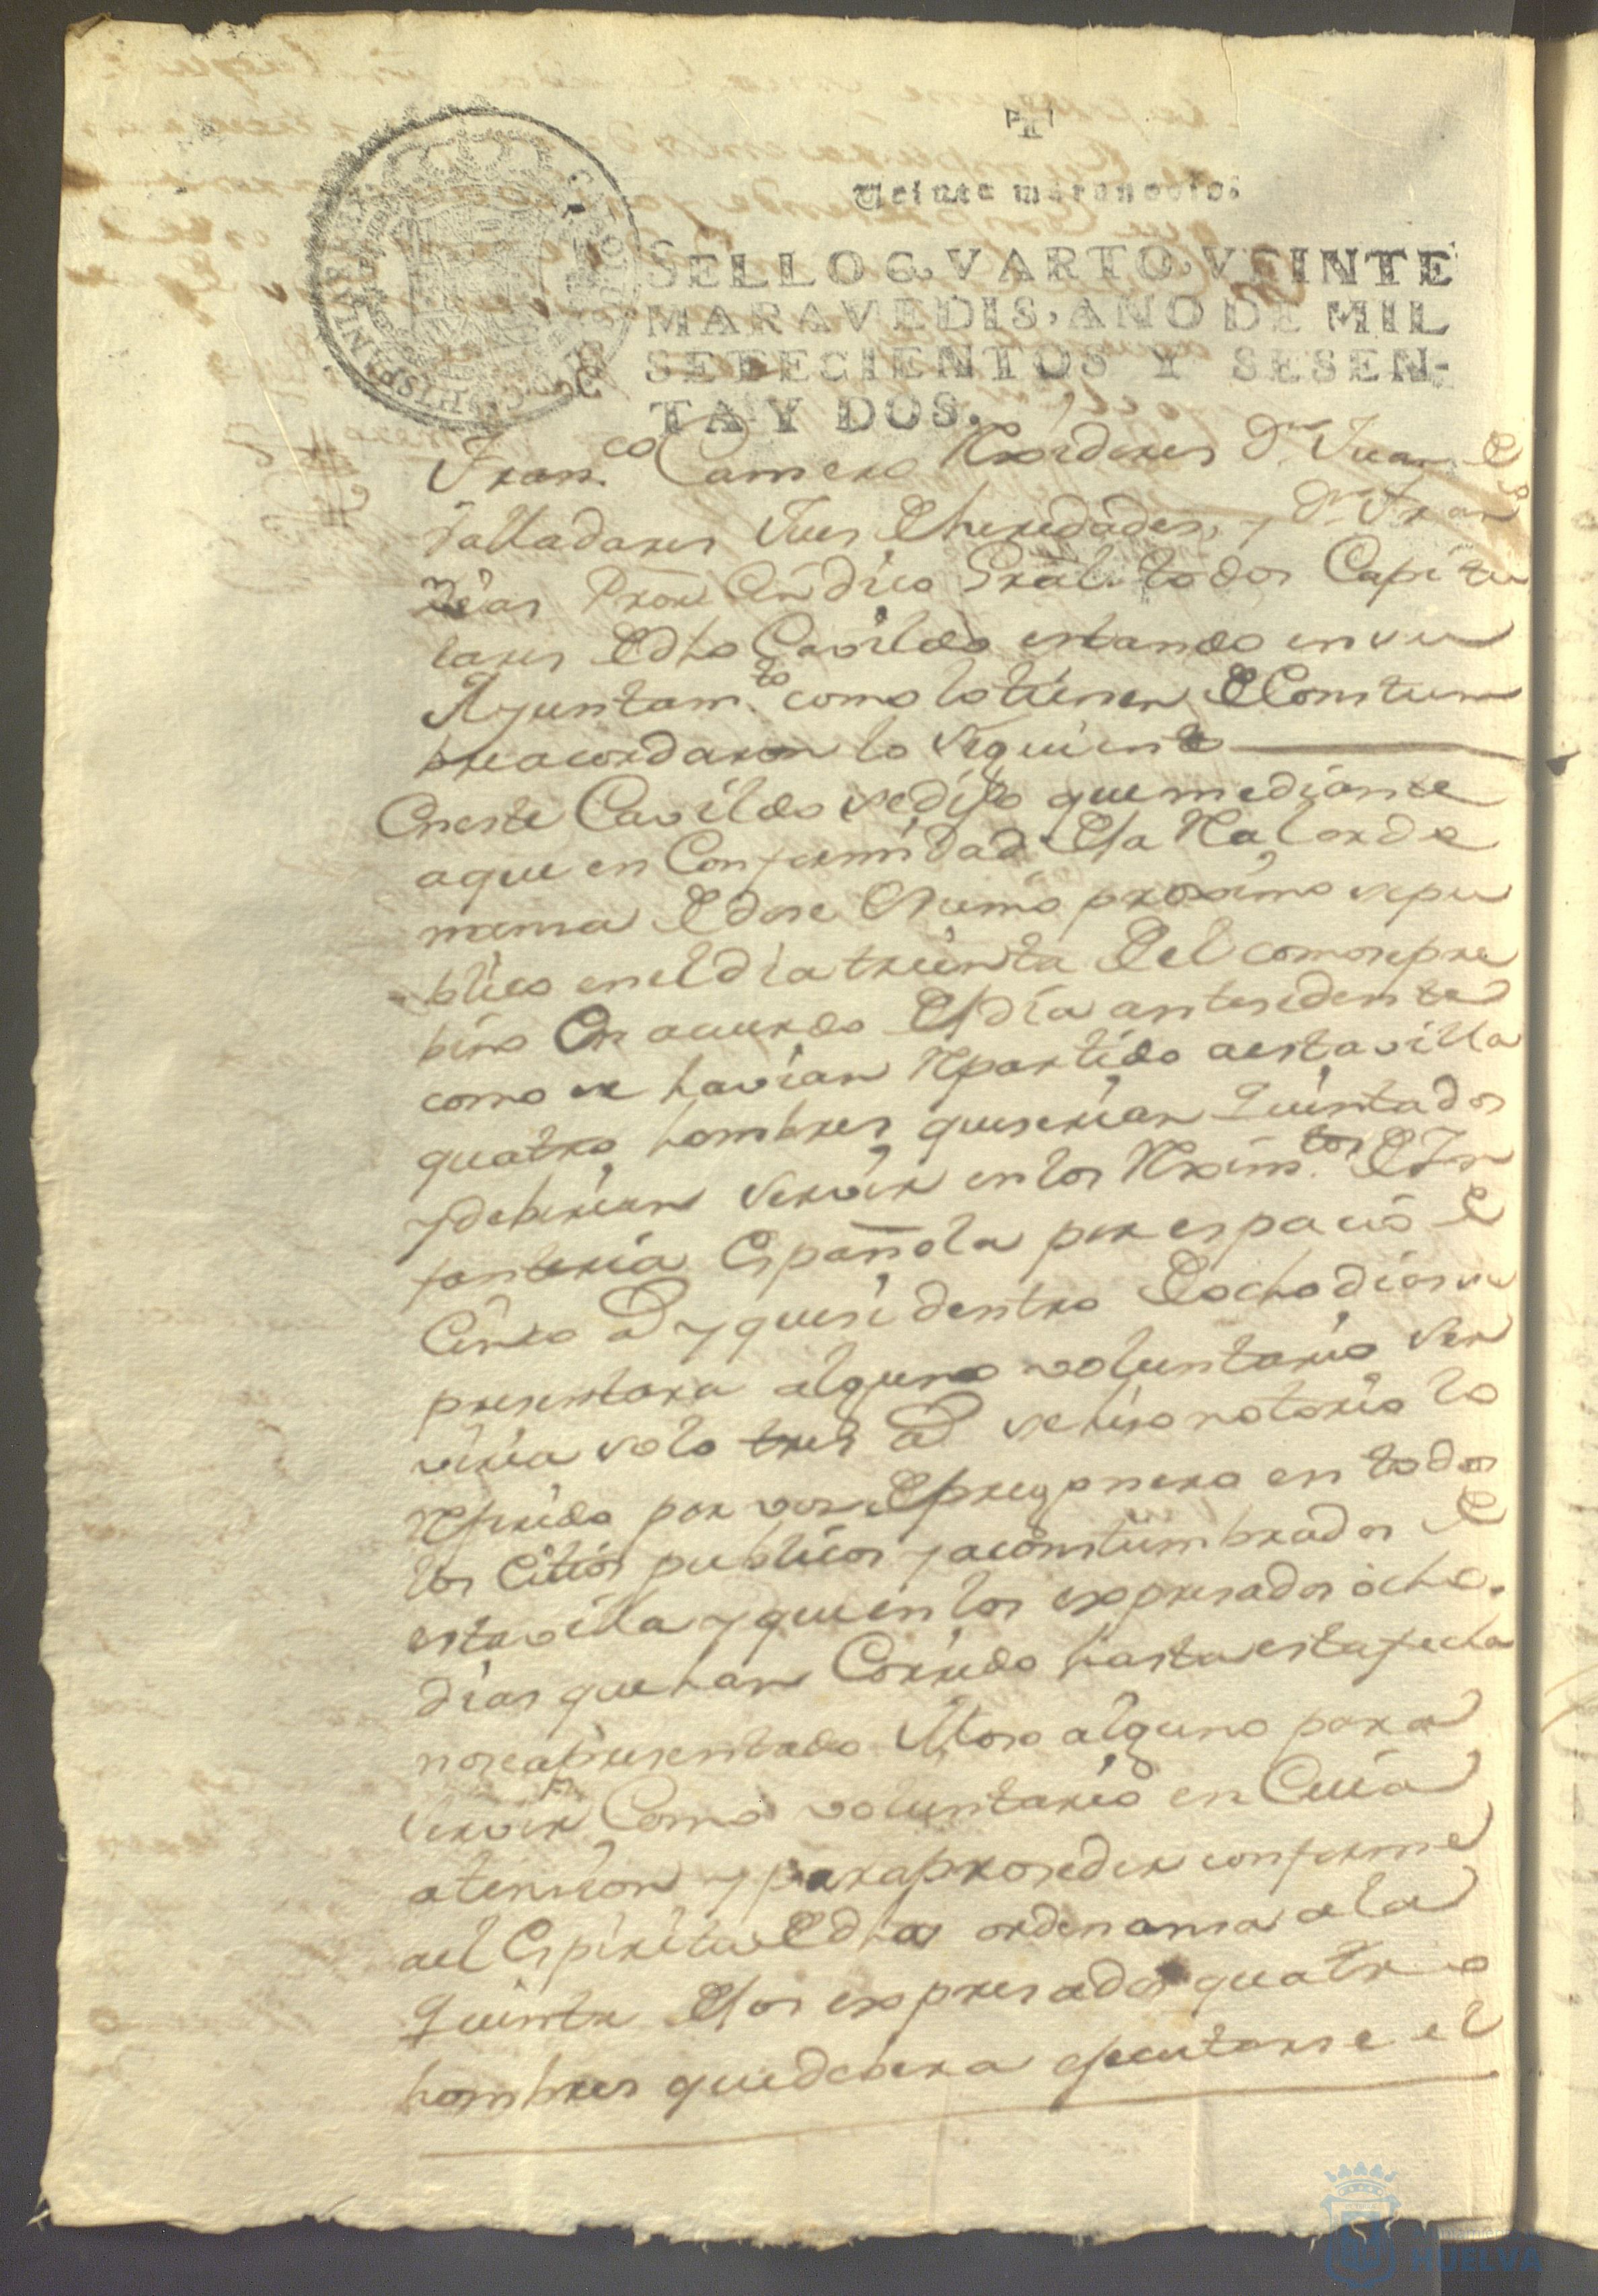 Veinte maravedis.
SELLO QVARTO, VEINTE
MARAVEDIS, AÑO DE MIL
SETECIENTOS Y SESEN-
TA Y DOS.
HISPANIAR
Fran.co Camero Rexidores Dn Juan de
Valladares Jues de heredades, y Dn Fran
Dias Pror Cindico Gral. todos Capitu
lares de dho Cavildo estando en su
Ayuntam.to como lo tienen de Costum
bre acordaron lo siguiente
En este Cavildo se dijo que mediante
a que en Conformidad de la Rl orde
nansa de dose de Junio proximo se pu
blico en el dia treinta del como se pre
bino en acuerdo del dia antesedente
como se havian repartido a esta villa
quatro hombres que serian quintados
y deberian servir en los Rexim.tos de In
fanteria Española por espacio de
Cinco as y que si dentro de ocho dias se
presentara alguno voluntario ser
viria solo tres as se hiso notorio lo
referido por vos de pregonero en todos
los Citios publicos y acostumbrados de
esta villa y que en los expresados ocho
dias que han Corrido hasta esta fecha
no se a presentado Moso alguno para
servir Como voluntario en Cuia
atension y para proseder conforme
a el Espiritu de dha ordenansa a la
quinta de los expresados quatro
hombres que debera ejecutarse el
HUELVA